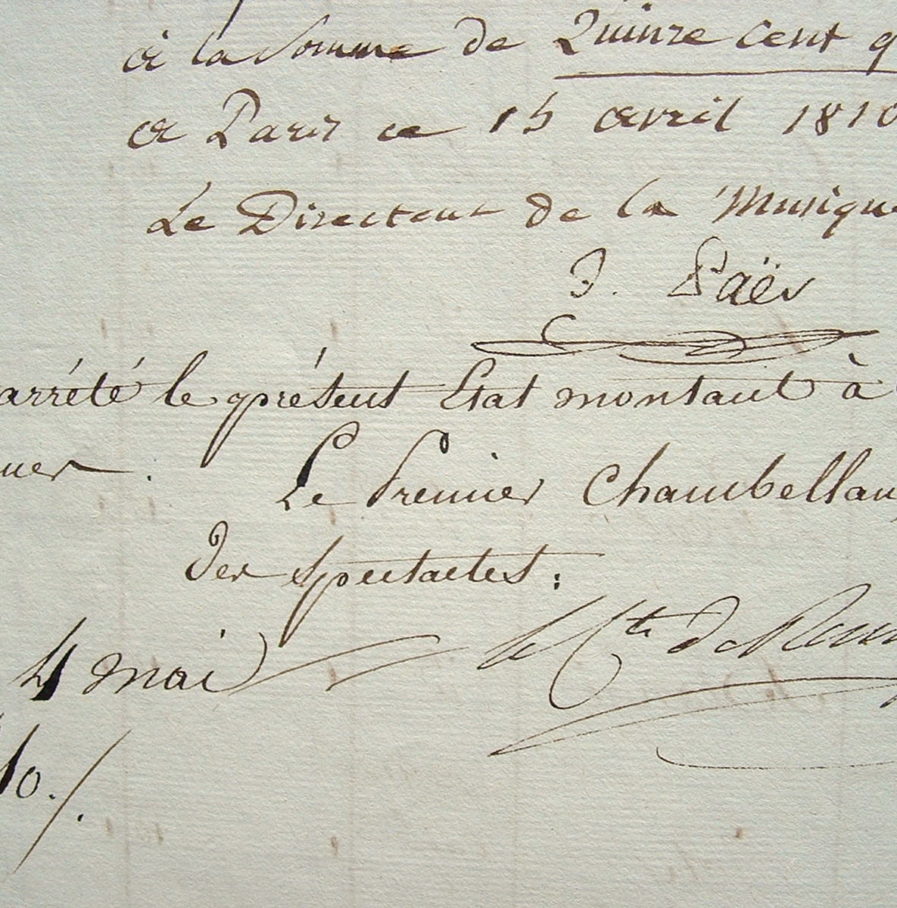 à la Somme de Quinze cent q
à Paris ce 15 avril 1810
Le Directeur de la Musique
F. Paër
arrêté le présent Etat montant à
uer.
Le Premier Chambellan,
des spectacles:
le Cte de Rému
4 mai
10./.